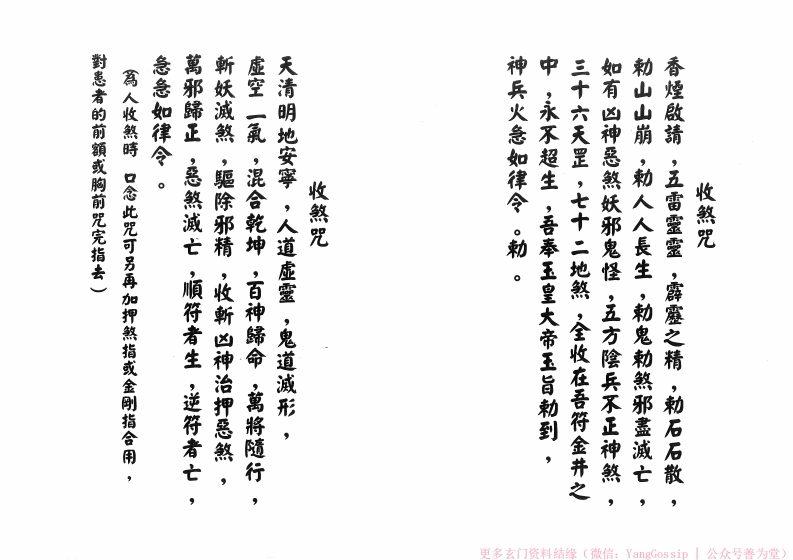 收煞咒
香煙啟請，五雷靈靈，霹靂之精，勅石石散，
勅山山崩，勅人人長生，勅鬼勅煞邪盡滅亡，
如有凶神惡煞妖邪鬼怪，五方陰兵不正神煞，
三十六天罡，七十二地煞，全收在吾符金井之
中，永不超生，吾奉玉皇大帝玉旨勅到，
神兵火急如律令。勅。
收煞咒
天清明地安寧，人道虛靈，鬼道滅形，
虛空一氣，混合乾坤，百神歸命，萬將隨行，
斬妖滅煞，驅除邪精，收斬凶神治押惡煞，
萬邪歸正，惡煞滅亡，順符者生，逆符者亡，
急急如律令。
（為人收煞時 口念此咒可另再加押煞指或金剛指合用，
對患者的前額或胸前咒完指去）
更多玄门资料结缘（微信：YangGossip | 公众号善为堂）